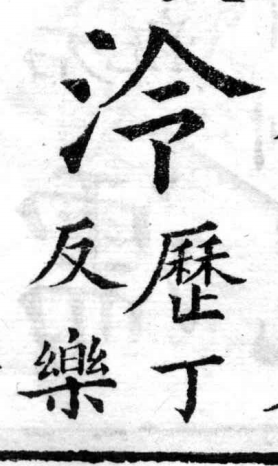 泠
歷丁
反樂